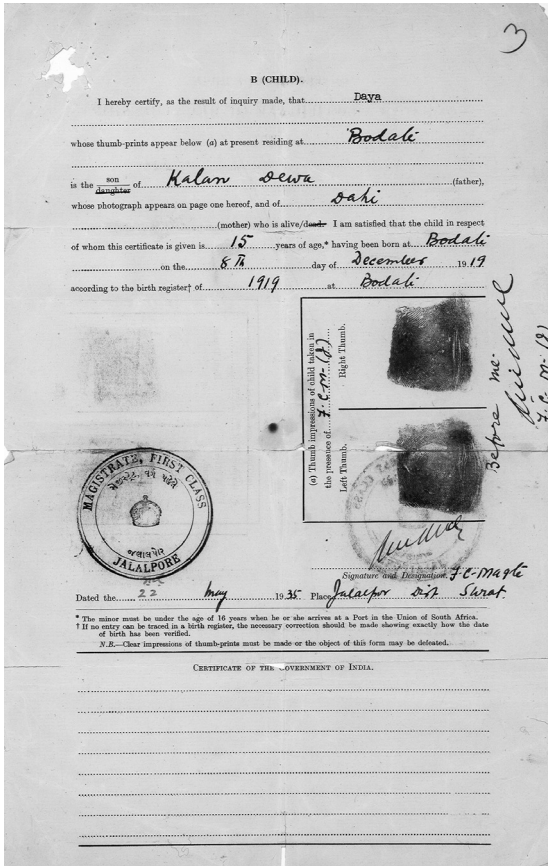 3
B (CHILD).
I hereby certify, as the result of inquiry made, that Daya
whose thumb-prints appear below (a) at present residing at Bodali
is the son daughter of Kalan Dewa (father),
whose photograph appears on page one hereof, and of Dahi
(mother) who is alive/dead. I am satisfied that the child in respect
of whom this certificate is given is 15 years of age,* having been born at Bodali
on the 8th day of December 1919
according to the birth register† of 1919 at Bodali
(a) Thumb impressions of child taken in
the presence of F.C.M. (J)
Right Thumb.
Left Thumb.
Before me.
F.C.M. (J)
MAGISTRATE, FIRST CLASS
JALALPORE
Signature and Designation. F.C. Magte
Dated the 22 May 1935 Place Jalalpor Dist Surat
* The minor must be under the age of 16 years when he or she arrives at a Port in the Union of South Africa.
† If no entry can be traced in a birth register, the necessary correction should be made showing exactly how the date
of birth has been verified.
N.B.—Clear impressions of thumb-prints must be made or the object of this form may be defeated.
CERTIFICATE OF THE GOVERNMENT OF INDIA.